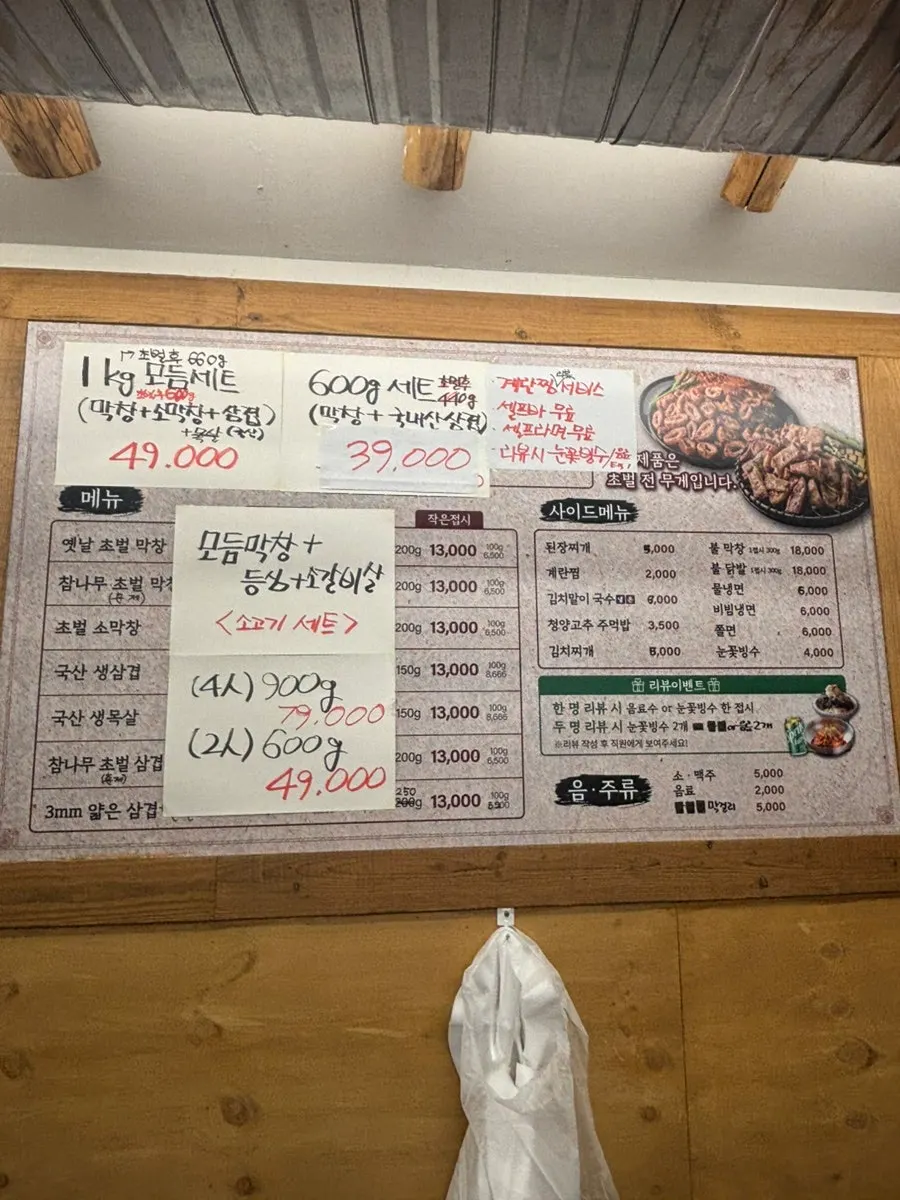 1kg 모둠세트
초벌후 660g
(막창+소막창+삼겹)
+목살 (국산)
49.000
600g 세트 초벌후 440g
(막창 + 국내산삼겹)
39,000
· 계란찜 서비스
셀프바 무료
· 셀프라면무료
· 리뷰시 눈꽃빙수/음료
제품은
초벌 전 무게입니다.
메뉴
작은접시
옛날 초벌 막창
200g 13,000 100g 6,500
참나무 초벌 막창
(훈제)
200g 13,000 100g 6,500
초벌 소막창
200g 13,000 100g 6,500
국산 생삼겹
150g 13,000 100g 8,666
국산 생목살
150g 13,000 100g 8,666
참나무 초벌 삼겹
(훈제)
200g 13,000 100g 6,500
3mm 얇은 삼겹
250
200g 13,000 100g
모듬막창 +
등심+소갈비살
<소고기 세트>
(4人) 900g
79.000
(2人) 600g
49.000
사이드메뉴
된장찌개 5,000
계란찜 2,000
김치말이 국수 6,000
청양고추 주먹밥 3,500
김치찌개 5,000
불 막창 1접시 300g 18,000
불 닭발 1접시 300g 18,000
물냉면 6,000
비빔냉면 6,000
쫄면 6,000
눈꽃빙수 4,000
리뷰이벤트
한 명 리뷰 시 음료수 or 눈꽃빙수 한 접시
두 명 리뷰 시 눈꽃빙수 2개 or 음료 2개
※리뷰 작성 후 직원에게 보여주세요!
음·주류
소·맥주 5,000
음료 2,000
막걸리 5,000